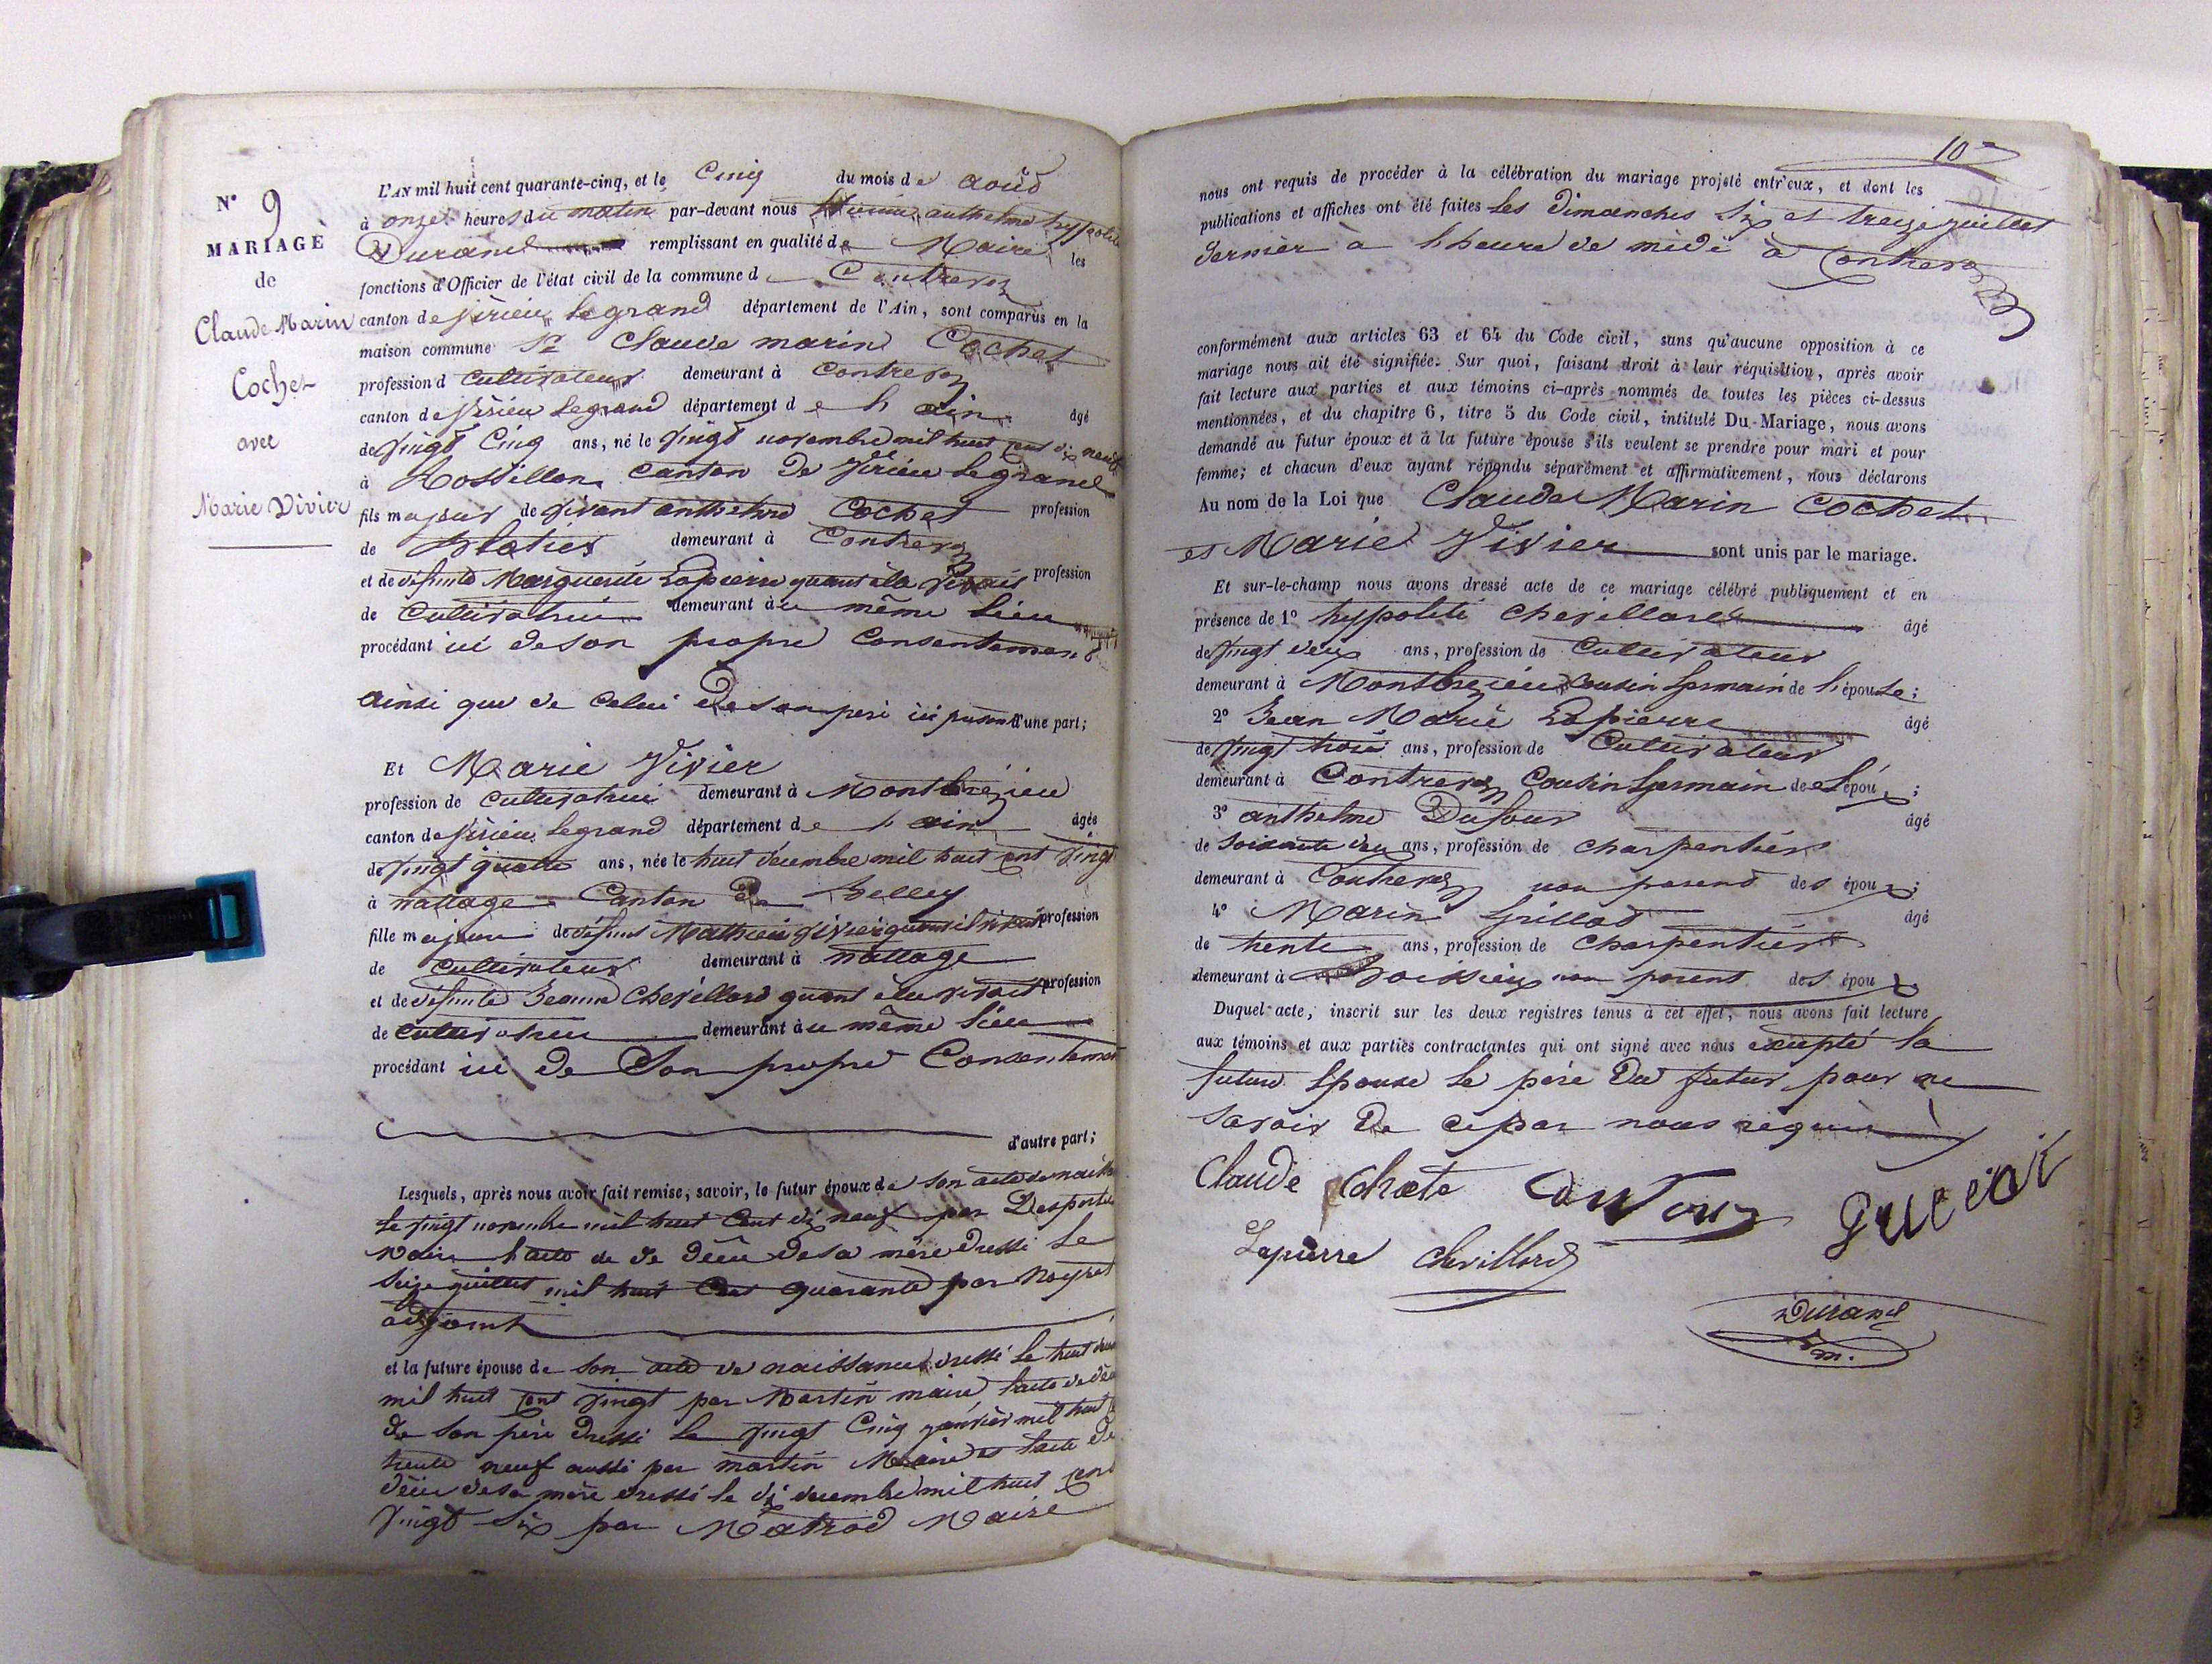 N° 9
MARIAGE
de
Claude Marin
Cochet
avec
Marie Vivier
L'AN mil huit cent quarante-cinq, et le Cinq du mois de aoud
à onze heures du matin par-devant nous anthelme hyppolite
Durand remplissant en qualité de Maire les
fonctions d'Officier de l'état civil de la commune d Contrevoz
canton de Virieu legrand département de l'Ain, sont comparus en la
maison commune Sr Claude marin Cochet
profession d cultivateur demeurant à Contrevoz
canton de Virieu legrand département de l ain âgé
de Vingt Cinq ans, né le Vingt novembre mil huit cent dix neuf
à Rossillon canton de Virieu legrand
fils majeur de vivant anthelme Cochet profession
de demeurant à Contrevoz
et de défunte Marguerite Lapierre quant éla vivais profession
de Cultivatrice demeurant àu même lieu
procédant ici de son propre Consentement
ainsi que de celui de son peri ici présent d'une part;
Et Marie Vivier
profession de cultivatrice demeurant à Montbrezieu
canton de Virieu legrand département de l ain âgée
de Vingt quatre ans, née le huit décembre mil huit cent Vingt
à nattage Canton de Belley
fille majeure de défunt Mathieu Vivier quant il vivait profession
de cultivateur demeurant à nattage
et de défunte Jeanne Chevillard quant elle vivait profession
de cultivatrice demeurant àu même lieu
procédant ici de Son propre Consentement
d'autre part;
Lesquels, après nous avoir fait remise, savoir, le futur époux de son acte de naiss
le vingt novembre mil huit Cent dix neuf par Desportes
Maire l acte de de déèu de sa mére dressé le
Seize juillet mil huit Cent quarante par Noyret
adjoint
et la future épouse de son acte de naissance dressé le huit
mil huit cent Vingt par Martin maire l acte de
de son peri dressé le Vingt Cinq janvier mil huit
trente neuf aussi par martin Maire et lacte de
déèu de sa mére dressé le di décembre mil huit cent
Vingt Six par Matrod Maire
10
nous ont requis de procéder à la célébration du mariage projeté entr'eux, et dont les
publications et affiches ont été faites les dimanches Six et treize juillet
dernièr à l heure de midi à Contrevoz
conformément aux articles 63 et 64 du Code civil, sans qu'aucune opposition à ce
mariage nous ait été signifiée. Sur quoi, faisant droit à leur réquisition, après avoir
fait lecture aux parties et aux témoins ci-après nommés de toutes les pièces ci-dessus
mentionnées, et du chapitre 6, titre 5 du Code civil, intitulé Du Mariage, nous avons
demandé au futur époux et à la future épouse s'ils veulent se prendre pour mari et pour
femme; et chacun d'eux ayant répondu séparément et affirmativement, nous déclarons
Au nom de la Loi que Claude Marin Cochet
et Marie Vivier sont unis par le mariage.
Et sur-le-champ nous avons dressé acte de ce mariage célébré publiquement et en
présence de 1° hyppolite chevillard âgé
de Vingt deux ans, profession de Cultivateur
demeurant à Montbrezieu Cousin Germain de l'épouse;
2° Jean Marie Lapierre âgé
de Vingt trois ans, profession de Cultivateur
demeurant à Contrevoz Cousin Germain de l'époux;
3° anthelme Dufour âgé
de Soixante ans, profession de charpentier
demeurant à Contrevoz non parend des époux;
4° Marin Grillot âgé
de trente ans, profession de charpentier
demeurant à non parent des époux
Duquel acte, inscrit sur les deux registres tenus à cet effet, nous avons fait lecture
aux témoins et aux parties contractantes qui ont signé avec nous exepté la
future Epouse le père du futur pour ne
savoir de ce par nous requis
Claude
Lapierre chevillard
Durand
m.